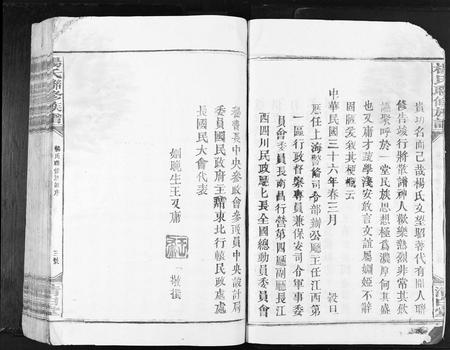 楊氏聯修族譜
貴功名而已哉楊氏文望昭著代有聞人聯
修告竣行將散譜神人歡樂熱烈非常其飲
讌聚呼於一堂民族思想極為濃厚何其盛
也又庸才疏學淺安敢言文誼屬姻婭不辭
固陋爰我其梗概云
中華民國三十六年春三月 穀旦
歷任上海警備司令部辦公廳主任江西第
一區行政督察專員兼保安司令軍事委
員會委員長南昌行營第四廳副廳長江
西四川民政廳長全國總動員委員會
秘書長中央參政會參政員中央設計局
委員國民政府主席東北行轅民政處處
長國民大會代表
姻晚生王又庸
敬撰
楊氏聯修族譜
三號
清白堂